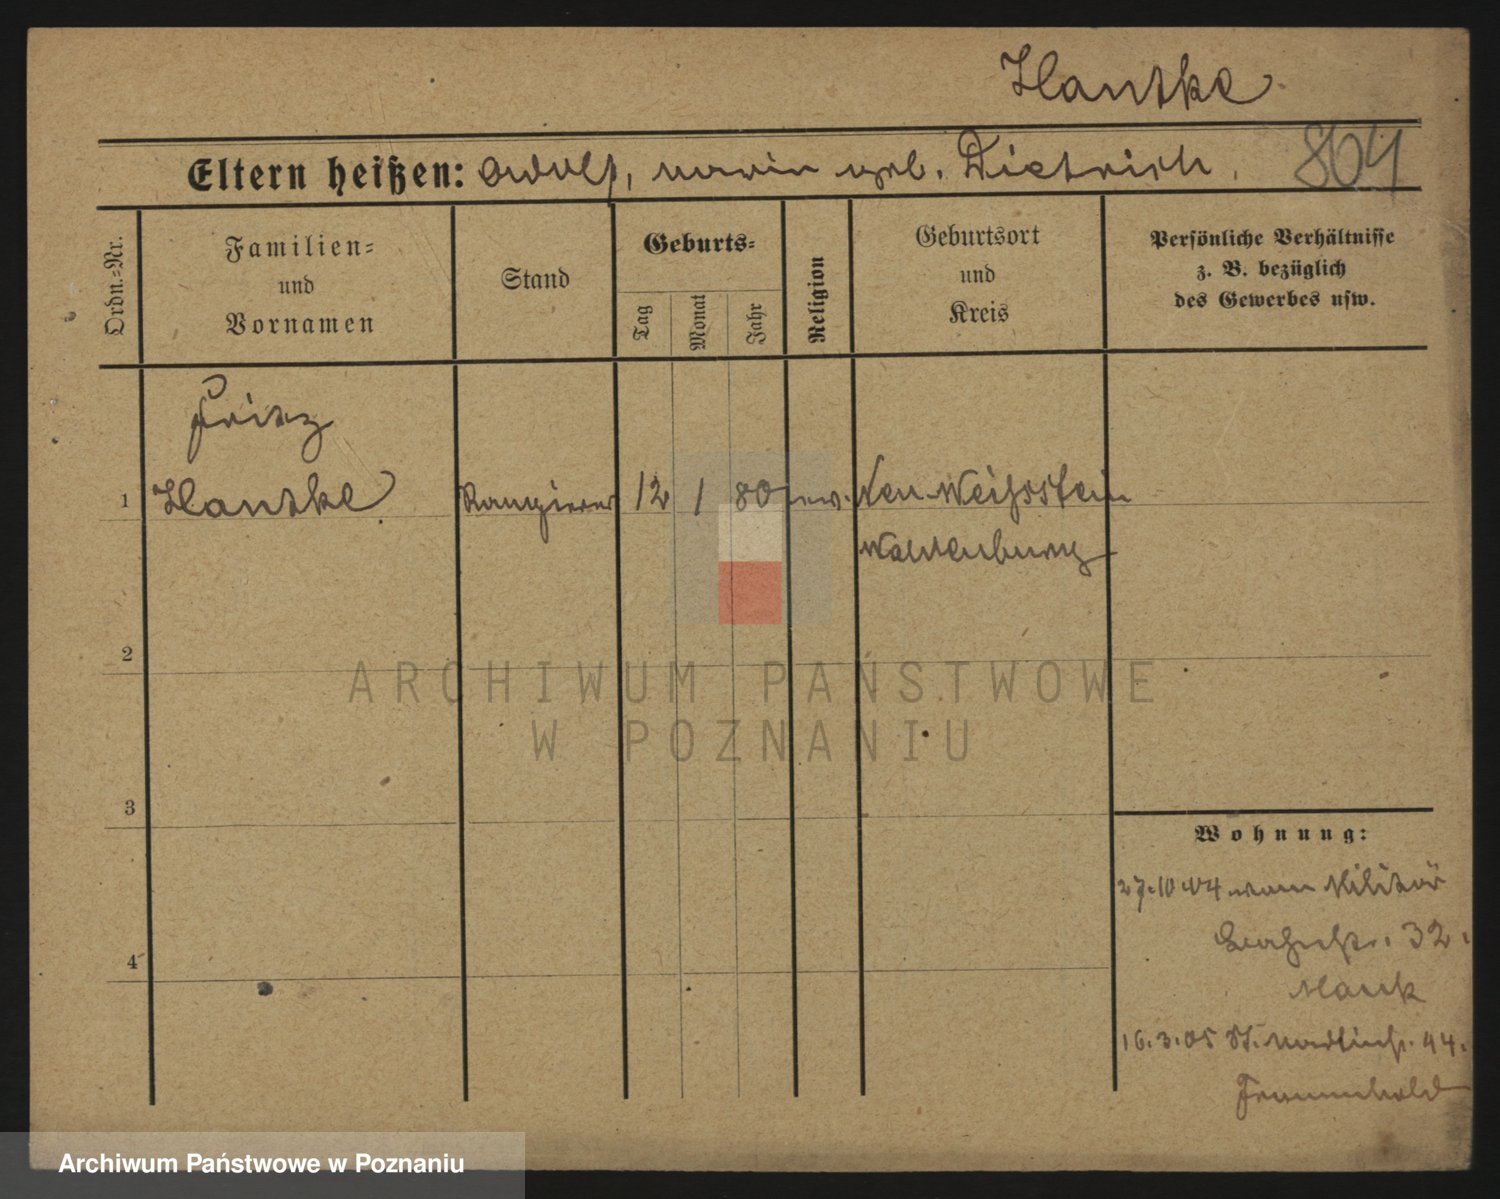 Hantke
Eltern heißen: Adolf, Maria geb. Dietrich. 804
Ordn.=Nr.
Familien=
und
Vornamen
Stand
Geburts=
Tag
Monat
Jahr
Religion
Geburtsort
und
Kreis
Persönliche Verhältnisse
z. B. bezüglich
des Gewerbes usw.
Fritz
1 Hantke Rangierer 12 1 80 ev. Neu-Weißstein
Waldenburg
2
3
4
Wohnung:
27.10.04 vom Militär
32.
16.3.05 St. Martinstr. 44.
Frommhold
ARCHIWUM PAŃSTWOWE
W POZNANIU
Archiwum Państwowe w Poznaniu